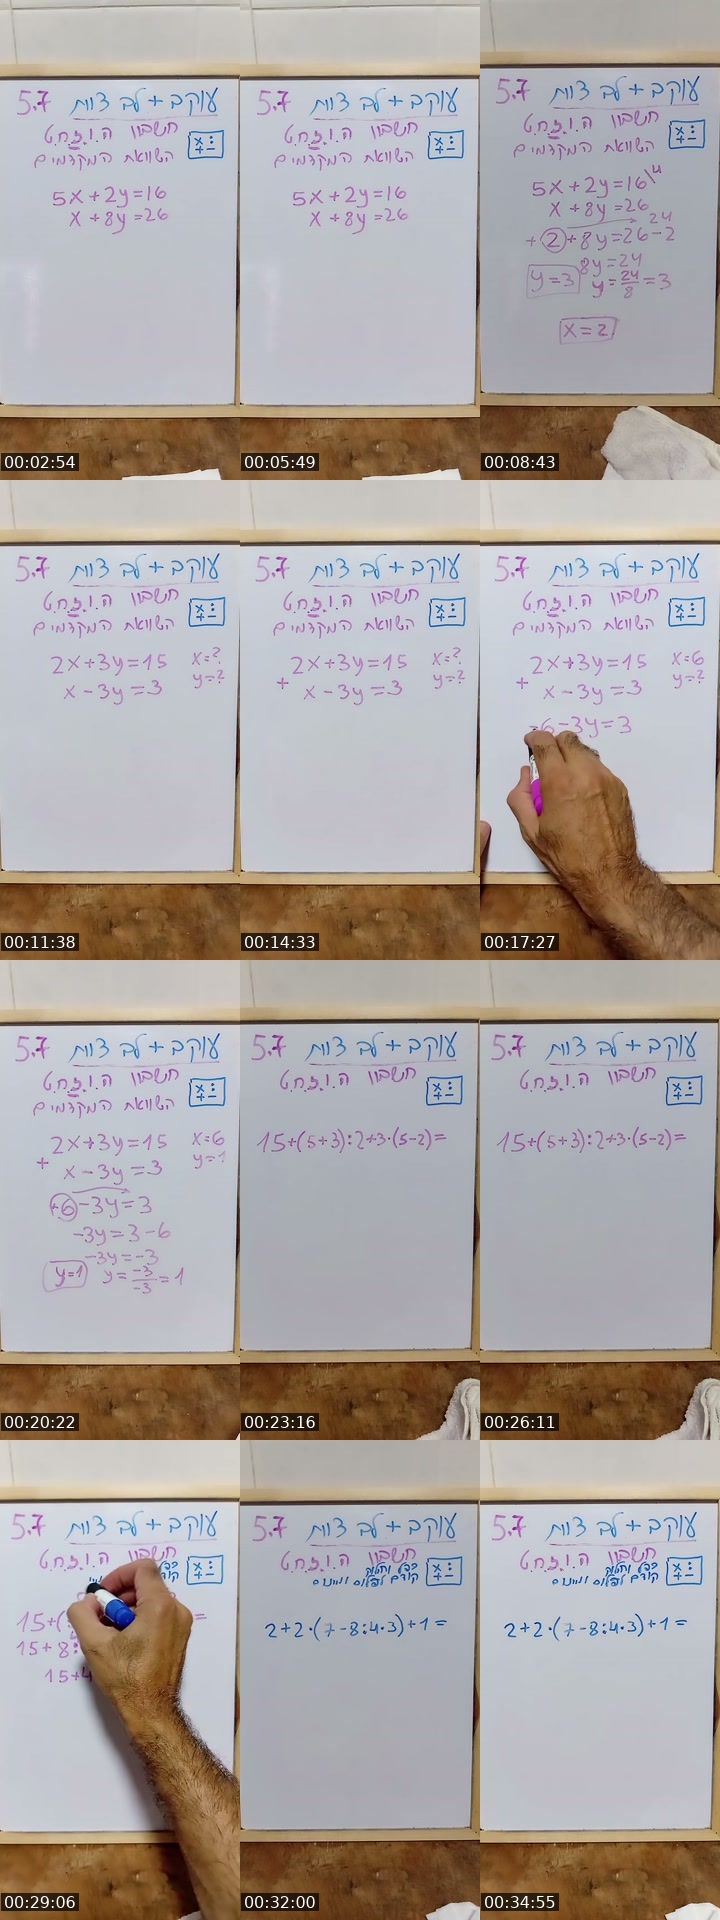 5.7 עוקב + לב צוות
חשבון ה.ו.ז.ח.ט
השוואת המקדמים
5x+2y=16
x+8y=26
00:02:54
5.7 עוקב + לב צוות
חשבון ה.ו.ז.ח.ט
השוואת המקדמים
5x+2y=16
x+8y=26
00:05:49
5.7 עוקב + לב צוות
חשבון ה.ו.ז.ח.ט
השוואת המקדמים
5x+2y=16\4
x+8y=26
24
+2+8y=26-2
8y=24
y=3 y=24/8=3
x=2
00:08:43
5.7 עוקב + לב צוות
חשבון ה.ו.ז.ח.ט
השוואת המקדמים
2x+3y=15 x=?
x-3y=3 y=?
00:11:38
5.7 עוקב + לב צוות
חשבון ה.ו.ז.ח.ט
השוואת המקדמים
2x+3y=15 x=?
+ x-3y=3 y=?
00:14:33
5.7 עוקב + לב צוות
חשבון ה.ו.ז.ח.ט
השוואת המקדמים
2x+3y=15 x=6
+ x-3y=3 y=?
6-3y=3
00:17:27
5.7 עוקב + לב צוות
חשבון ה.ו.ז.ח.ט
השוואת המקדמים
2x+3y=15 x=6
+ x-3y=3 y=1
+6-3y=3
-3y=3-6
-3y=-3
y=1 y=-3/-3=1
00:20:22
5.7 עוקב + לב צוות
חשבון ה.ו.ז.ח.ט
15+(5+3):2+3·(5-2)=
00:23:16
5.7 עוקב + לב צוות
חשבון ה.ו.ז.ח.ט
15+(5+3):2+3·(5-2)=
00:26:11
5.7 עוקב + לב צוות
חשבון ה.ו.ז.ח.ט
15+( =
15+8:
15+4
00:29:06
5.7 עוקב + לב צוות
חשבון ה.ו.ז.ח.ט
כפל וחילוק
קודם לפלוס ומינוס
2+2·(7-8:4·3)+1=
00:32:00
5.7 עוקב + לב צוות
חשבון ה.ו.ז.ח.ט
כפל וחילוק
קודם לפלוס ומינוס
2+2·(7-8:4·3)+1=
00:34:55